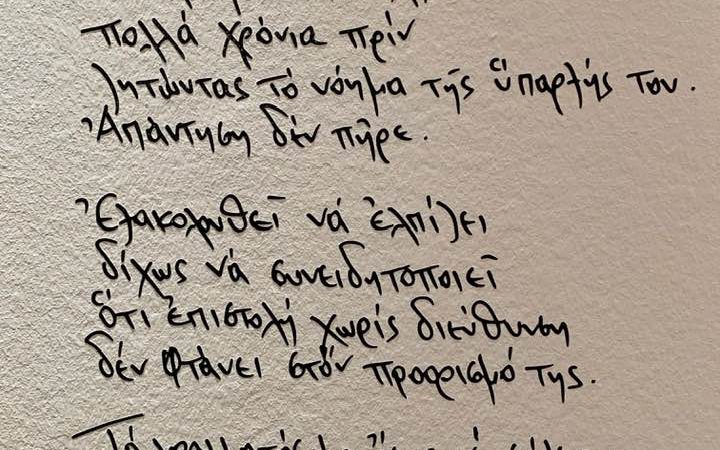 πολλά χρόνια πρίν
ζητώντας τό νόημα τῆς ὕπαρξής του.
Ἀπάντηση δέν πῆρε.
Ἐξακολουθεῖ νά ἐλπίζει
δίχως νά συνειδητοποιεῖ
ὅτι ἐπιστολή χωρίς διεύθυνση
δέν φτάνει στόν προορισμό της.